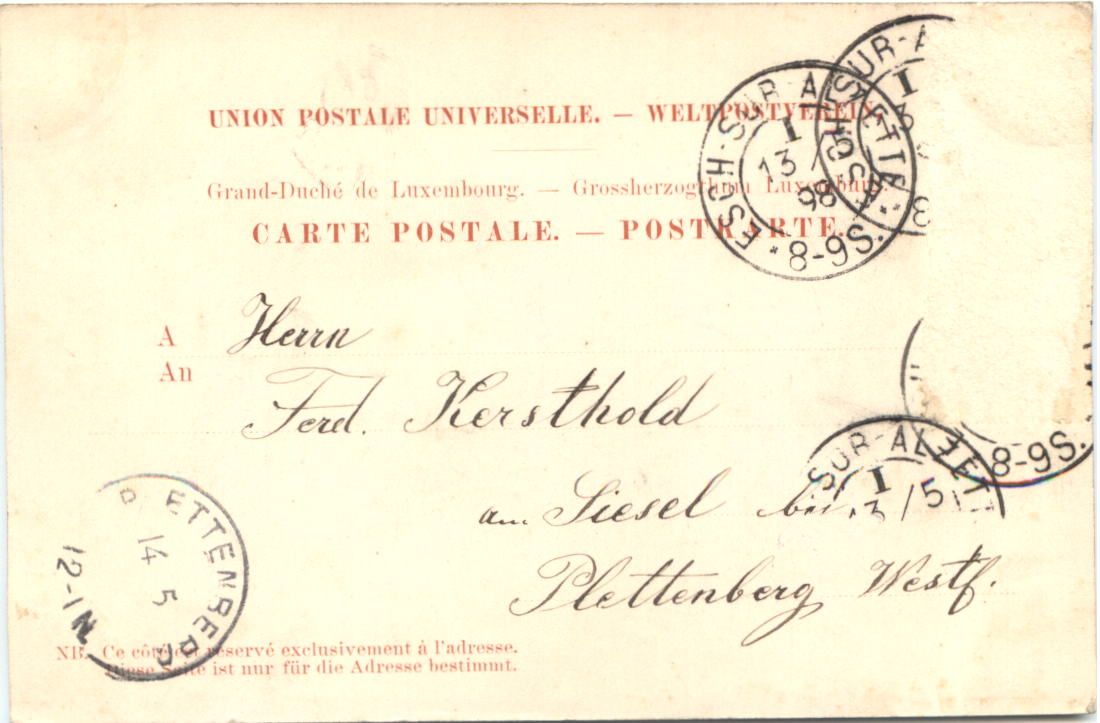 UNION POSTALE UNIVERSELLE. — WELTPOSTVEREIN.
Grand-Duché de Luxembourg. — Grossherzogthum Luxemburg.
CARTE POSTALE. — POSTKARTE.
ESCH-SUR-ALZETTE
I
13/5
98
8-9S.
SUR-A
I
A
An
Herrn
Ferd. Kersthold
am Siesel bei
Plettenberg Westf.
8-9S.
SUR-ALZETT
I
13/5
PLETTENBERG
14
5
12-1N
NB. Ce côté est réservé exclusivement à l'adresse.
Diese Seite ist nur für die Adresse bestimmt.